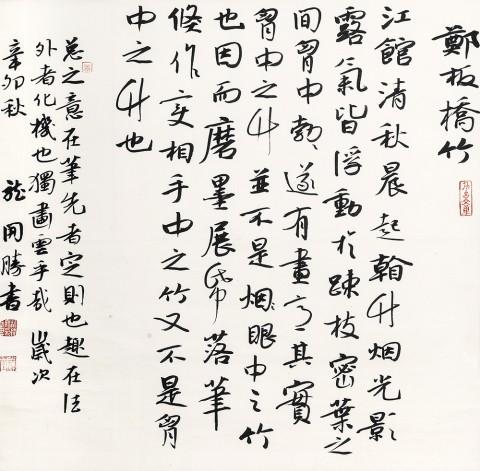 鄭板橋竹
江館清秋晨起翰竹烟光影
露氣皆浮動於疎枝密葉之
間胷中勃勃遂有畫意其實
胷中之竹並不是烟眼中之竹
也因而磨墨展帋落筆
倏作变相手中之竹又不是胷
中之竹也
总之意在筆先者定則也趣在法
外者化機也獨畫雲乎哉 歲次
辛卯秋 龍開勝書